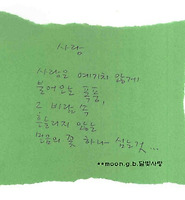 사랑
사랑은 예기치 않게
불어오는 폭풍,
그 바람 속
흔들리지 않는
믿음의 꽃 하나 심는 것...
**moon.g.b.달빛사랑